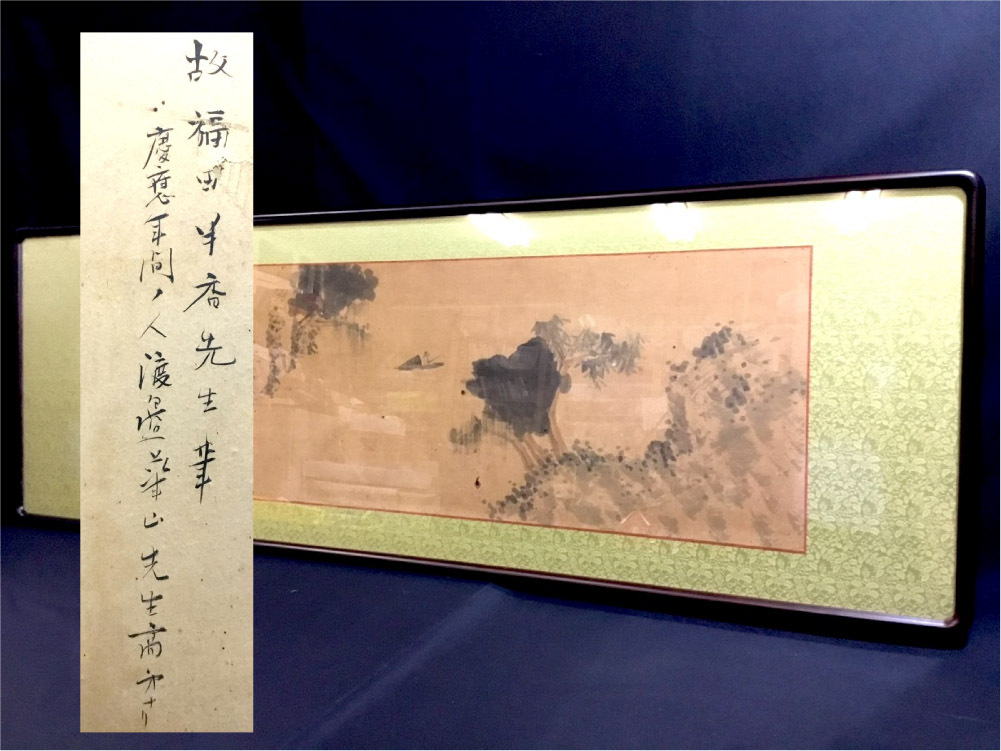 故福田半香先生筆
慶應年間ノ人渡邉崋山先生高弟ナリ